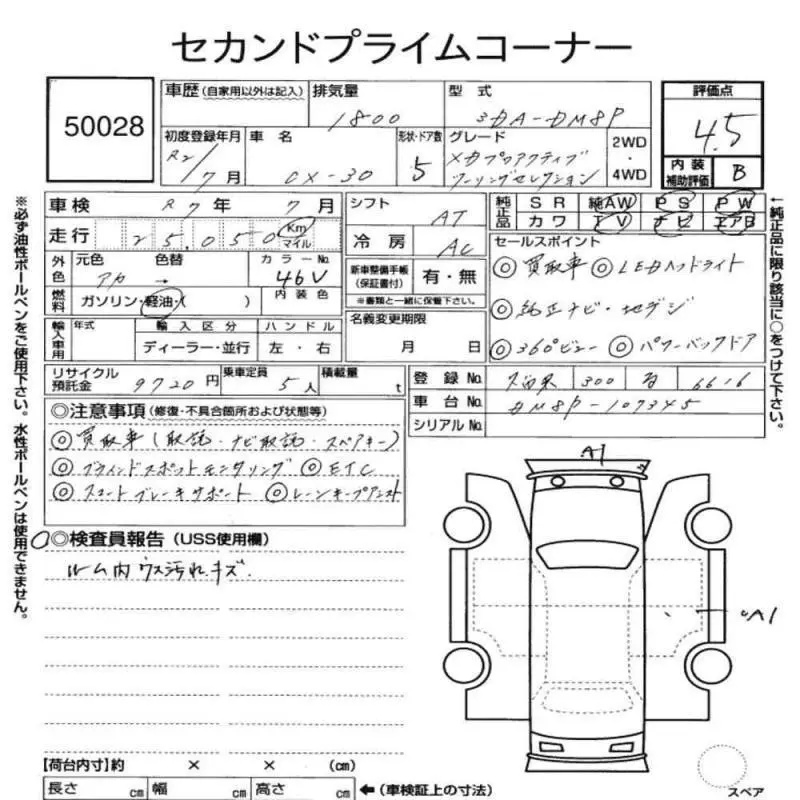 セカンドプライムコーナー
50028
車歴 (自家用以外は記入) 排気量 1800 型式 3DA-DM8P
評価点 4.5
初度登録年月 R2/7月 車名 CX-30 形状・ドア数 5 グレード XDプロアクティブ ツーリングセレクション 2WD・4WD
内装補助評価 B
車検 R7年 7月
走行 25,050 Km マイル
外色 元色 アカ 色替 → カラーNo. 46V
燃料 ガソリン・軽油・( ) 内装色
輸入車用 年式 輸入区分 ディーラー・並行 ハンドル 左・右
リサイクル預託金 9720円 乗車定員 5人 積載量 t
シフト AT
冷房 AC
新車整備手帳(保証書付) 有・無
※書類と一緒に保管下さい。
名義変更期限 月 日
純正品 SR 純AW PS PW
カワ TV ナビ エアB
セールスポイント
◎買取車 ◎LEDヘッドライト
◎純正ナビ・地デジ
◎360°ビュー ◎パワーバックドア
登録No. 300 6616
車台No. DM8P-107345
シリアルNo.
◎注意事項 (修復・不具合箇所および状態等)
◎買取車(取説・ナビ取説・スペアキー)
◎ブラインドスポットモニタリング ◎ETC
◎スマートブレーキサポート ◎レーンキープアシスト
◎検査員報告 (USS使用欄)
ルーム内ウス汚れ.キズ.
A1
A1
スペア
【荷台内寸】約 × × (cm)
長さ cm 幅 cm 高さ cm ←(車検証上の寸法)
※必ず油性ボールペンをご使用下さい。水性ボールペンは使用できません。
←純正品に限り該当に○をつけて下さい。